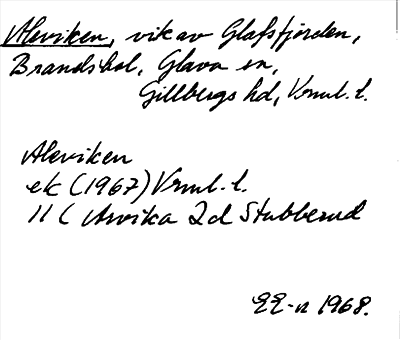 Aleviken, vik av Glafsfjorden,
Brandsbol, Glava sn,
Gillbergs hd, Vrml. l.
Aleviken
ek (1967) Vrml. l.
11 C Arvika 2d Stubberud
1968.